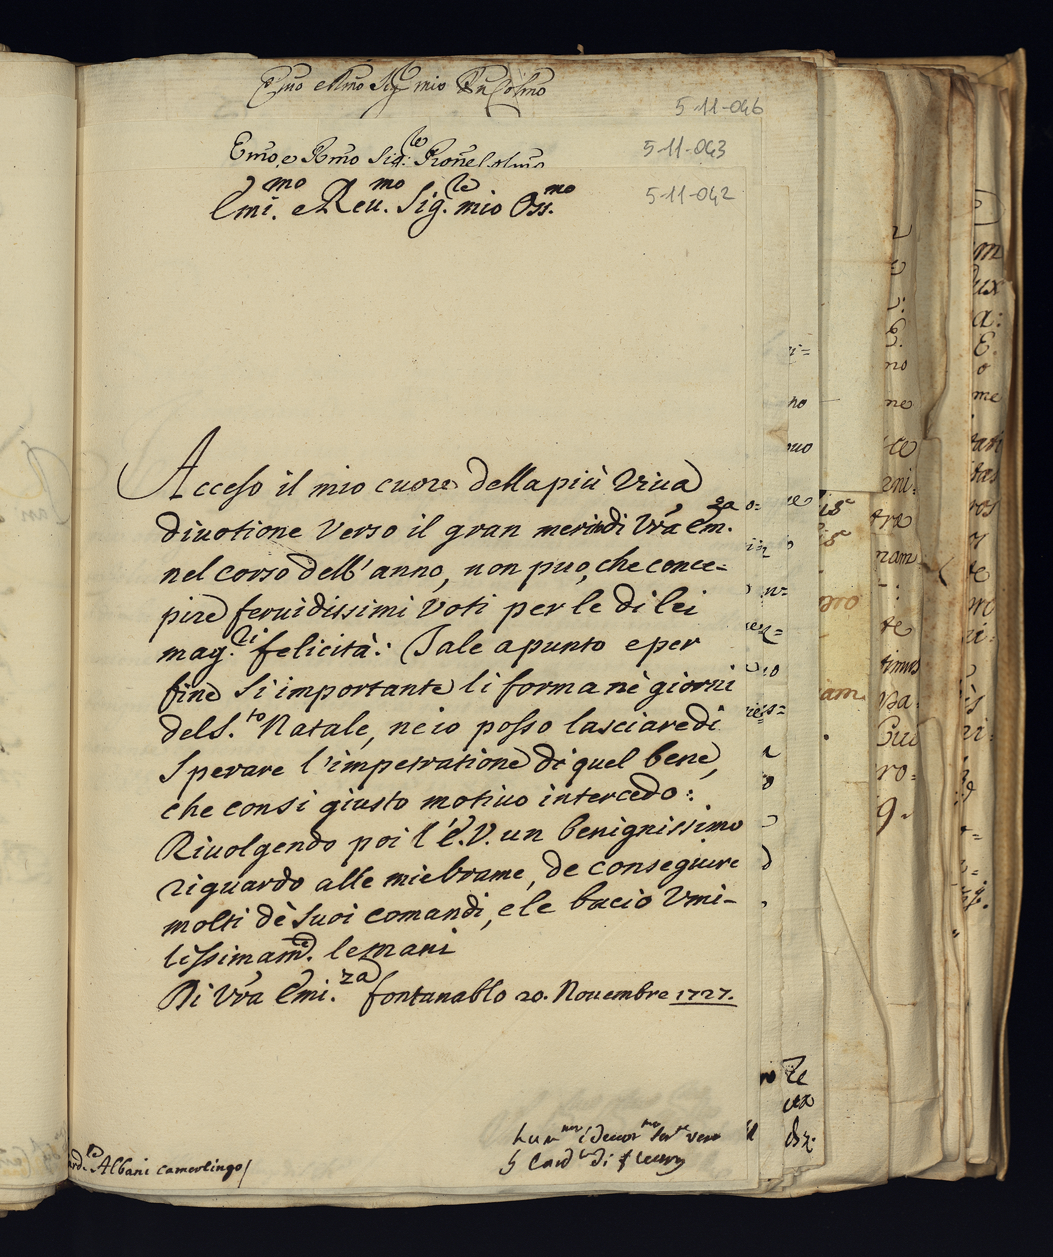 5-11-046
Emo e Rmo Sig.re
5-11-043
Emi.mo e Reu.mo Sig.re mio Oss.mo
5-11-042
Acceso il mio cuore della più Viua
diuotione Verso il gran merito di Vra Em.za
nel corso dell'anno, non può, che conce=
pire feruidissimi Voti per le di lei
mag.ri felicità: Tale apunto e per
fine si importante li forma nè giorni
del S.to Natale, ne io posso lasciare di
Sperare l'impetratione di quel bene,
che con si giusto motiuo intercedo:
Riuolgendo poi l'E.V. un benignissimo
riguardo alle mie brame, de conseguire
molti dè Suoi comandi, e le bacio Vmi-
lissimam.e le mani
Di Vra Emi.za fontanablo 20. Nouembre 1727.
hum.mo Seru.re vero
il Card.le di fleury
Albani camerlingo/